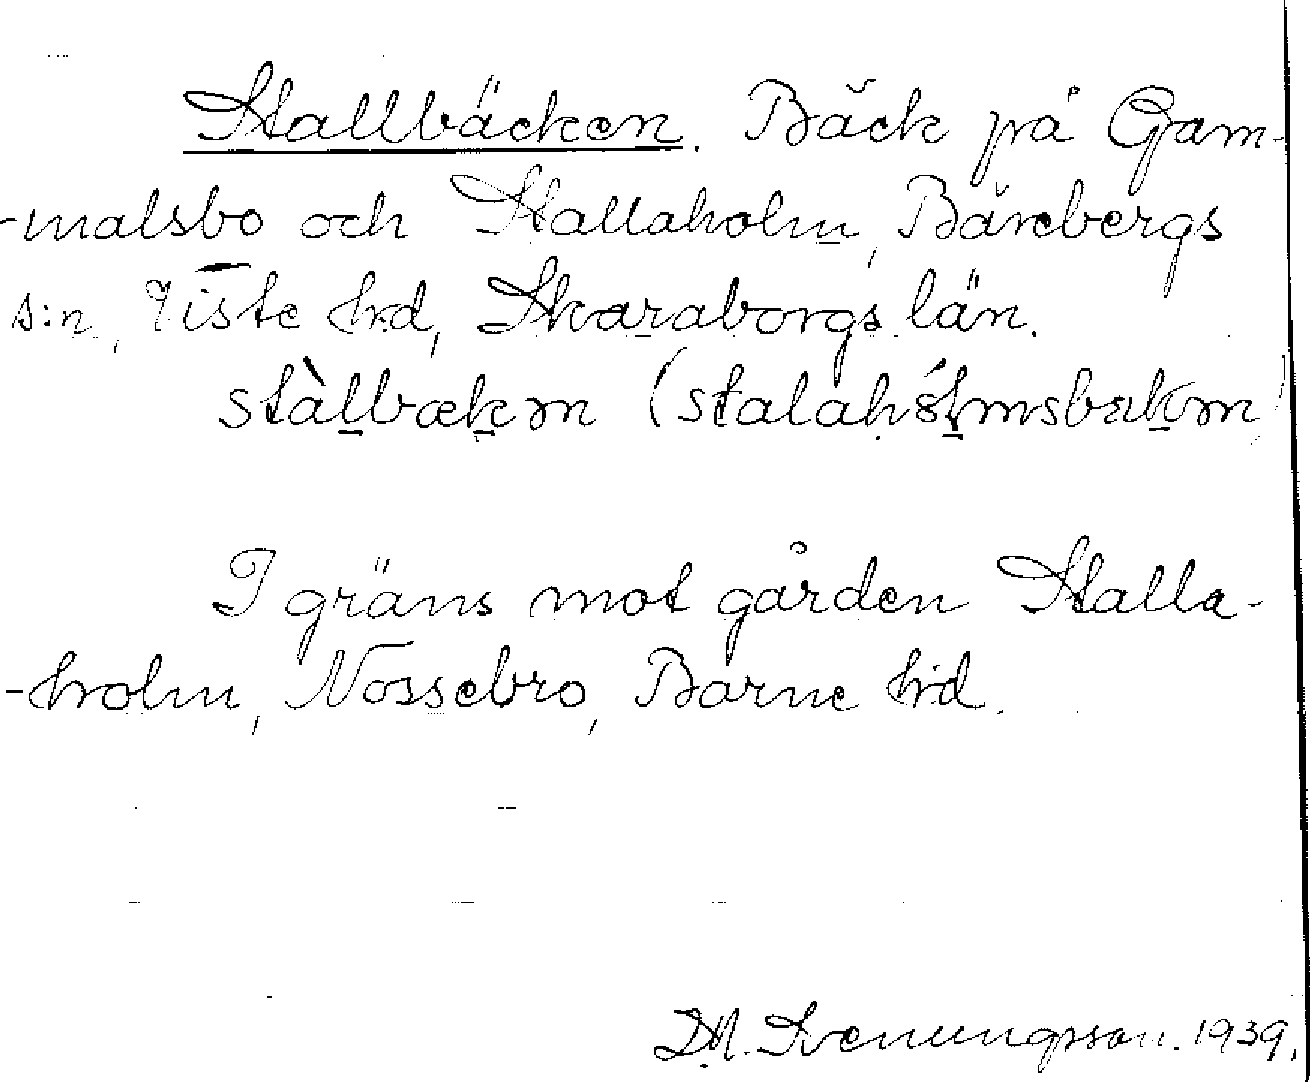 Stallbäcken. Bäck på Gam-
-malsbo och Stallaholm, Bärebergs
s:n, Viste hd, Skaraborgs län.
stàlbækɷn (stalahólmsbækɷn)
I gräns mot gården Stalla-
-holm, Nossebro, Barne hd.
D.A. Svenungsson. 1939.